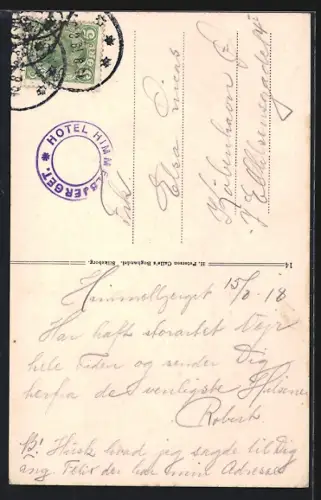 HOTEL HIMMELBJERGET.
Frk.
Elsa
København
14 H. Petersen Calle's Boghandel, Silkeborg.
Himmelbjerget 15/8 18
Har haft storartet Vejr
hele Tiden og sender Dig
herfra de venligste Hilsener
Robert.
Husk hvad jeg sagde til Dig
ang. Felix der har min Adresse